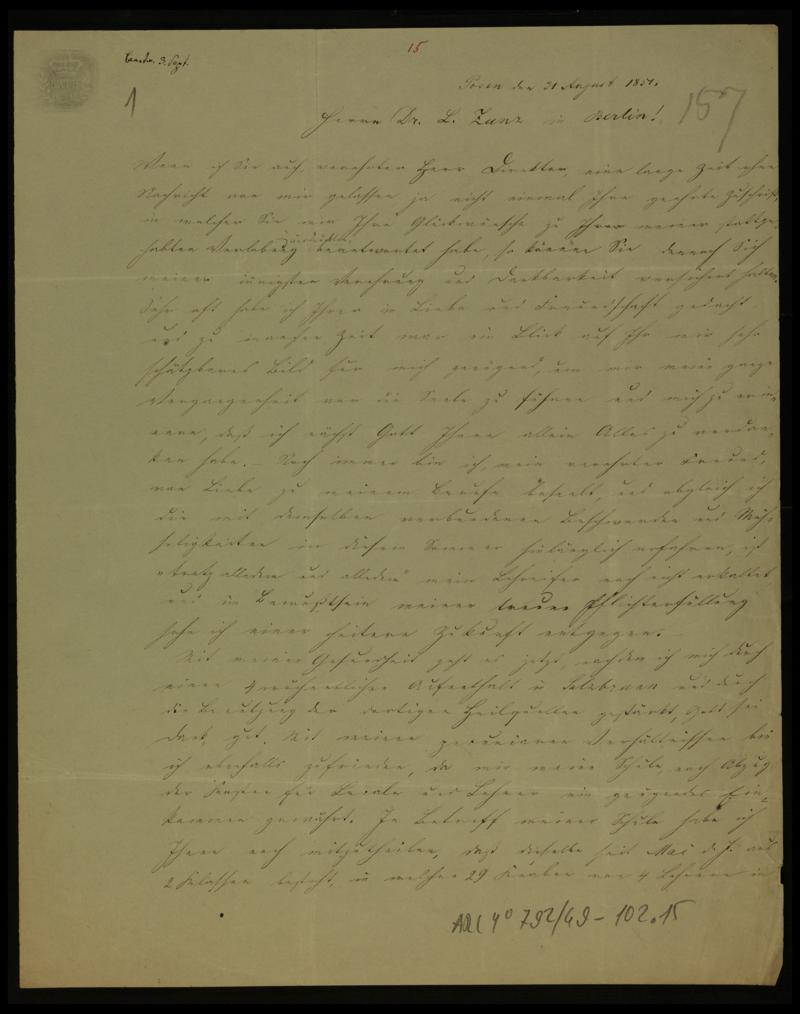 15
beantw. 3. Sept.
Posen den 31 August 1851.
1
157
Herrn Dr. L. Zunz in Berlin!
Wenn ich Sie auch, verehrter Herr Direktor, eine lange Zeit ohne
Nachricht von mir gelassen ja nicht einmal Ihre geehrte Zuschrift,
in welcher Sie mir Ihre Glückwünsche zu meiner stattge-
habten Verlobung beantwortet habe, so können Sie dennoch Sich
meiner innigsten Verehrung und Dankbarkeit versichert halten.
Sehr oft habe ich Ihrer in Liebe und Freundschaft gedacht
und zu mancher Zeit war ein Blick auf Ihr mir sehr
schätzbares Bild für mich genügend, um mir meine ganze
Vergangenheit vor die Seele zu führen und mich zu erin-
nern, daß ich nächst Gott Ihnen allein Alles zu verdan-
ken habe. – Noch immer bin ich, mein verehrter Freund,
von Liebe zu meinem Berufe beseelt, und obgleich ich
die mit demselben verbundenen Beschwerden und Müh-
seligkeiten in diesem Sommer hinlänglich erfahren, ist
"trotz alledem und alledem" mein Lehreifer noch nicht erkaltet
und im Bewußtsein meiner treuen Pflichterfüllung
sehe ich einer heitern Zukunft entgegen. –
Mit meiner Gesundheit geht es jetzt, nachdem ich mich durch
einen 4 wöchentlichen Aufenthalt in Salzbrunn und durch
die Benutzung der dortigen Heilquellen gestärkt, Gott sei
Dank, gut. Mit meinen pecuniären Verhältnissen bin
ich ebenfalls zufrieden, da mir meine Schule, nach Abzug
der Kosten für Locale und Lehrer ein genügendes Ein-
kommen gewährt. In Betreff meiner Schule habe ich
Ihnen noch mitzutheilen, daß dieselbe seit Mai d. J. aus
2 Klassen besteht, in welchen 29 Knaben von 4 Lehrern in
ARC 4° 792/G9 – 102.15